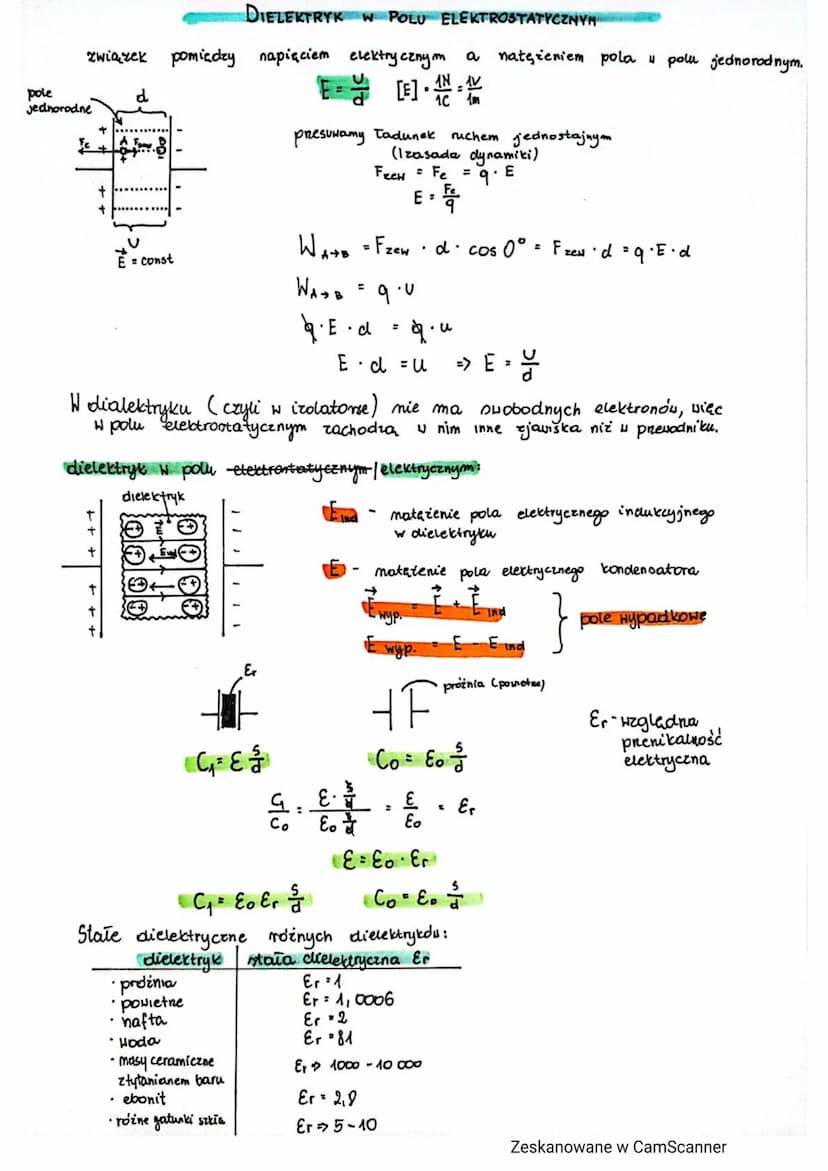 DIELEKTRYK W POLU ELEKTROSTATYCZNYM
związek pomiędzy napięciem elektrycznym a natężeniem pola w polu jednorodnym.
E = U/d [E] = 1N/1C = 1V/1m
pole jednorodne
d
+ -
Fe A Fzew B
U
E = const
przesuwamy ładunek ruchem jednostajnym
(I zasada dynamiki)
Fzew = Fe = q · E
E = Fe/q
W A→B = Fzew · d · cos 0° = Fzew · d = q · E · d
W A→B = q · U
q · E · d = q · u
E · d = u => E = U/d
W dialektryku (czyli w izolatorze) nie ma swobodnych elektronów, więc
w polu elektrostatycznym zachodzą w nim inne zjawiska niż w przewodniku.
dielektryk w polu elektrostatycznym / elektrycznym:
dielektryk
E
Eind
E ind - natężenie pola elektrycznego indukcyjnego
w dielektryku
E - natężenie pola elektrycznego kondensatora
E wyp. = E + E ind
E wyp. = E - E ind
pole wypadkowe
εr
próżnia (powietrze)
εr - względna
przenikalność
elektryczna
C1 = ε S/d C0 = ε0 S/d
C1/C0 = ε · S/d / ε0 S/d = ε/ε0 = εr
ε = ε0 · εr
C1 = ε0 εr S/d C0 = ε0 S/d
Stałe dielektryczne różnych dielektryków:
dielektryk stała dielektryczna εr
· próżnia εr = 1
· powietrze εr = 1,0006
· nafta εr = 2
· woda εr = 81
· masy ceramiczne
z tytanianem baru εr => 1000 - 10 000
· ebonit εr = 2,8
· różne gatunki szkła εr => 5 - 10
Zeskanowane w CamScanner